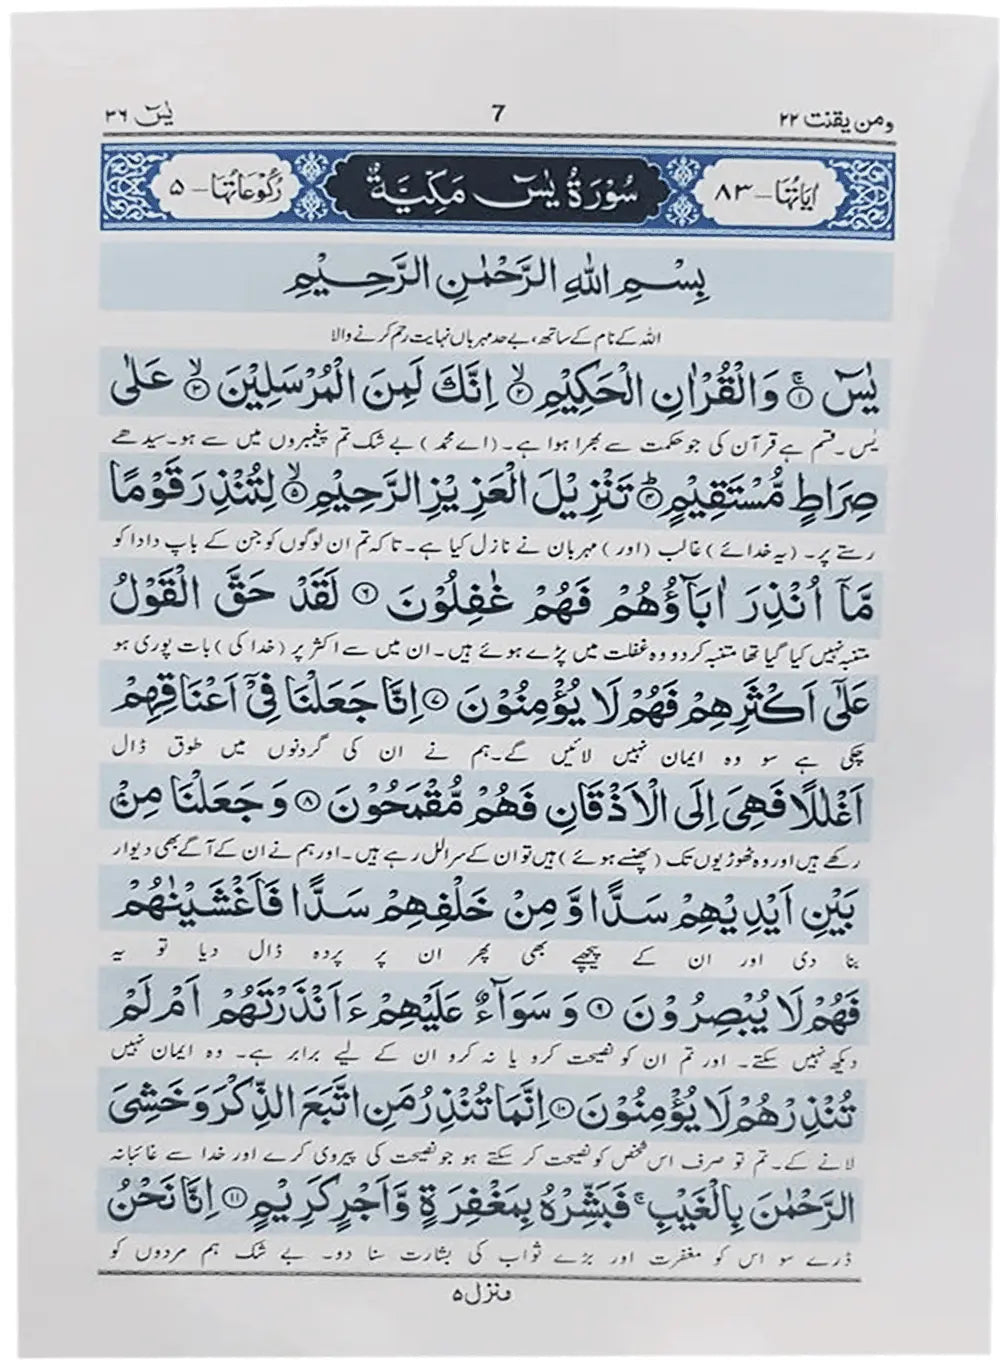 ومن یقنت ۲۲
7
یٰسٓ ۳۶
اٰیَاتُہَا – ۸۳
سُوْرَۃُ یٰسٓ مَکِّیَّۃٌ
رُکُوْعَاتُہَا – ۵
بِسْمِ اللّٰهِ الرَّحْمٰنِ الرَّحِیْمِ
اللہ کے نام کے ساتھ، بے حد مہرباں نہایت رحم کرنے والا
یٰسٓ ۚ﴿۱﴾ وَالْقُرْاٰنِ الْحَكِیْمِ ۙ﴿۲﴾ اِنَّكَ لَمِنَ الْمُرْسَلِیْنَ ۙ﴿۳﴾ عَلٰی
یٰس۔ قسم ہے قرآن کی جو حکمت سے بھرا ہوا ہے۔ (اے محمد) بے شک تم پیغمبروں میں سے ہو۔ سیدھے
صِرَاطٍ مُّسْتَقِیْمٍ ؕ﴿۴﴾ تَنْزِیْلَ الْعَزِیْزِ الرَّحِیْمِ ۙ﴿۵﴾ لِتُنْذِرَ قَوْمًا
رستے پر۔ (یہ خدائے) غالب (اور) مہربان نے نازل کیا ہے۔ تاکہ تم ان لوگوں کو جن کے باپ دادا کو
مَّاۤ اُنْذِرَ اٰبَآؤُهُمْ فَهُمْ غٰفِلُوْنَ ﴿۶﴾ لَقَدْ حَقَّ الْقَوْلُ
متنبہ نہیں کیا گیا تھا متنبہ کردو وہ غفلت میں پڑے ہوئے ہیں۔ ان میں سے اکثر پر (خدا کی) بات پوری ہو
عَلٰۤی اَكْثَرِهِمْ فَهُمْ لَا یُؤْمِنُوْنَ ﴿۷﴾ اِنَّا جَعَلْنَا فِیْۤ اَعْنَاقِهِمْ
چکی ہے سو وہ ایمان نہیں لائیں گے۔ ہم نے ان کی گردنوں میں طوق ڈال
اَغْلٰلًا فَهِیَ اِلَی الْاَذْقَانِ فَهُمْ مُّقْمَحُوْنَ ﴿۸﴾ وَ جَعَلْنَا مِنْۢ
رکھے ہیں اور وہ ٹھوڑیوں تک (پھنسے ہوئے) ہیں تو ان کے سر الل رہے ہیں۔ اور ہم نے ان کے آگے بھی دیوار
بَیْنِ اَیْدِیْهِمْ سَدًّا وَّ مِنْ خَلْفِهِمْ سَدًّا فَاَغْشَیْنٰهُمْ
بنا دی اور ان کے پیچھے بھی پھر ان پر پردہ ڈال دیا تو یہ
فَهُمْ لَا یُبْصِرُوْنَ ﴿۹﴾ وَ سَوَآءٌ عَلَیْهِمْ ءَاَنْذَرْتَهُمْ اَمْ لَمْ
دیکھ نہیں سکتے۔ اور تم ان کو نصیحت کرو یا نہ کرو ان کے لیے برابر ہے۔ وہ ایمان نہیں
تُنْذِرْهُمْ لَا یُؤْمِنُوْنَ ﴿۱۰﴾ اِنَّمَا تُنْذِرُ مَنِ اتَّبَعَ الذِّكْرَ وَ خَشِیَ
لانے کے۔ تم تو صرف اس شخص کو نصیحت کر سکتے ہو جو نصیحت کی پیروی کرے اور خدا سے غائبانہ
الرَّحْمٰنَ بِالْغَیْبِ ۚ فَبَشِّرْهُ بِمَغْفِرَةٍ وَّ اَجْرٍ كَرِیْمٍ ﴿۱۱﴾ اِنَّا نَحْنُ
ڈرے سو اس کو مغفرت اور بڑے ثواب کی بشارت سنا دو۔ بے شک ہم مردوں کو
منزل ۵